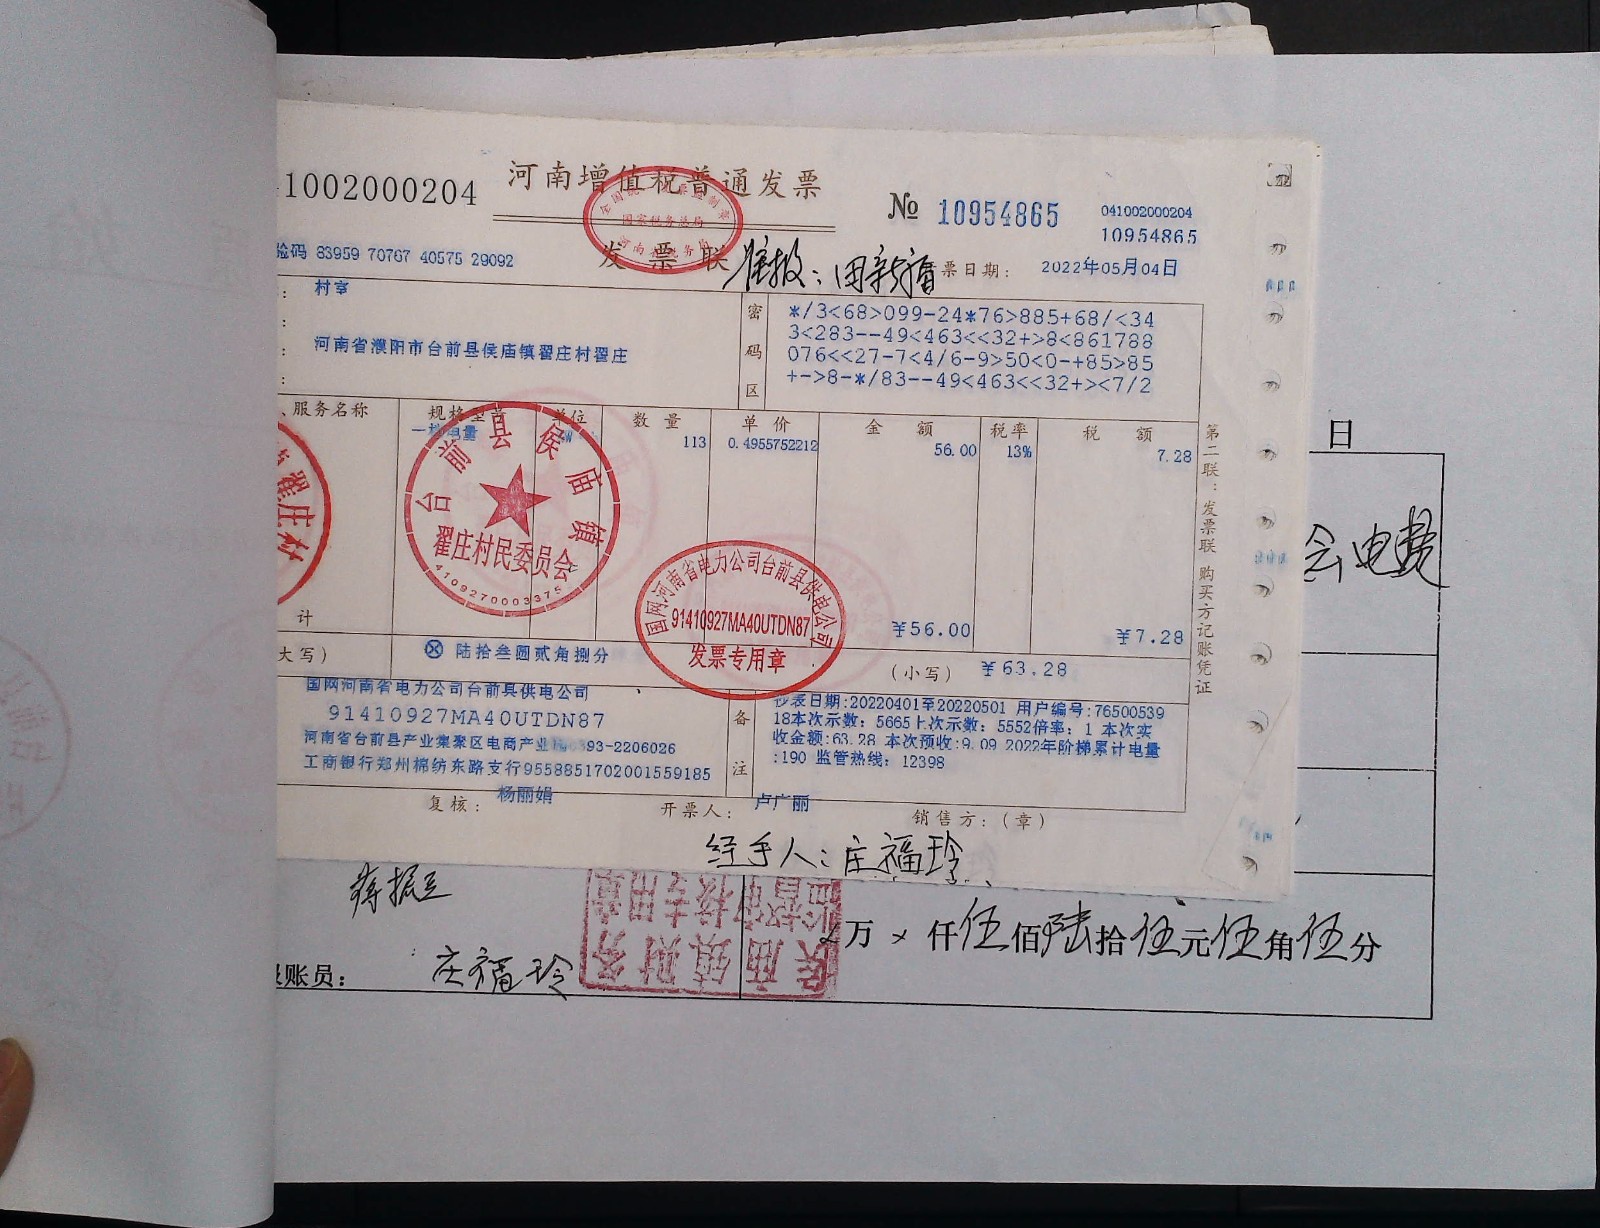 1002000204
河南增值税普通发票
№ 10954865
041002000204
10954865
83959 70767 40575 29092
发票联
准报：田新
票日期： 2022年05月04日
： 村室
：
： 河南省濮阳市台前县侯庙镇翟庄村翟庄
：
密码区
*/3<68>099-24*76>885+68/<34
3<283--49<463<<32+>8<861788
076<<27-7<4/6-9>50<0-+85>85
+->8-*/83--49<463<<32+><7/2
、服务名称 规格型号 单位 数量 单价 金额 税率 税额
113 0.4955752212 56.00 13% 7.28
台前县侯庙镇
翟庄村民委员会
4109270003375
翟庄村
国网河南省电力公司台前县供电公司
91410927MA40UTDN87
发票专用章
计 ¥56.00 ¥7.28
大写） ⊗ 陆拾叁圆贰角捌分 （小写） ¥63.28
国网河南省电力公司台前县供电公司
91410927MA40UTDN87
河南省台前县产业集聚区电商产业 93-2206026
工商银行郑州棉纺东路支行9558851702001559185
备注
抄表日期:20220401至20220501 用户编号:76500539
18本次示数: 5665上次示数: 5552倍率: 1 本次实
收金额:63.28 本次预收:9.09 2022年阶梯累计电量
:190 监管热线: 12398
复核： 杨丽娟 开票人： 卢广丽 销售方：（章）
第二联：发票联 购买方记账凭证
经手人：庄福玲
日
会电费
蒋振
万 × 仟 伍 佰 陆 拾 伍 元 伍 角 伍 分
账员： 庄福玲
侯庙镇财务